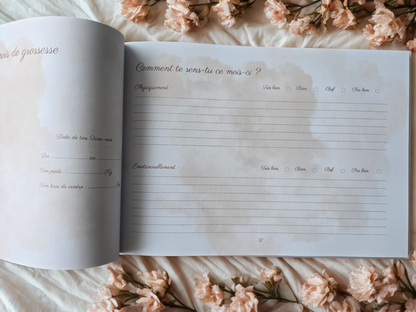 mois de grossesse
Date de ton 7ème mois
Du ........ au ........
Ton poids : ........ Kg
Ton tour de ventre :
Comment te sens-tu ce mois-ci ?
Physiquement Très bien Bien Bof Pas bien
Emotionnellement Très bien Bien Bof Pas bien